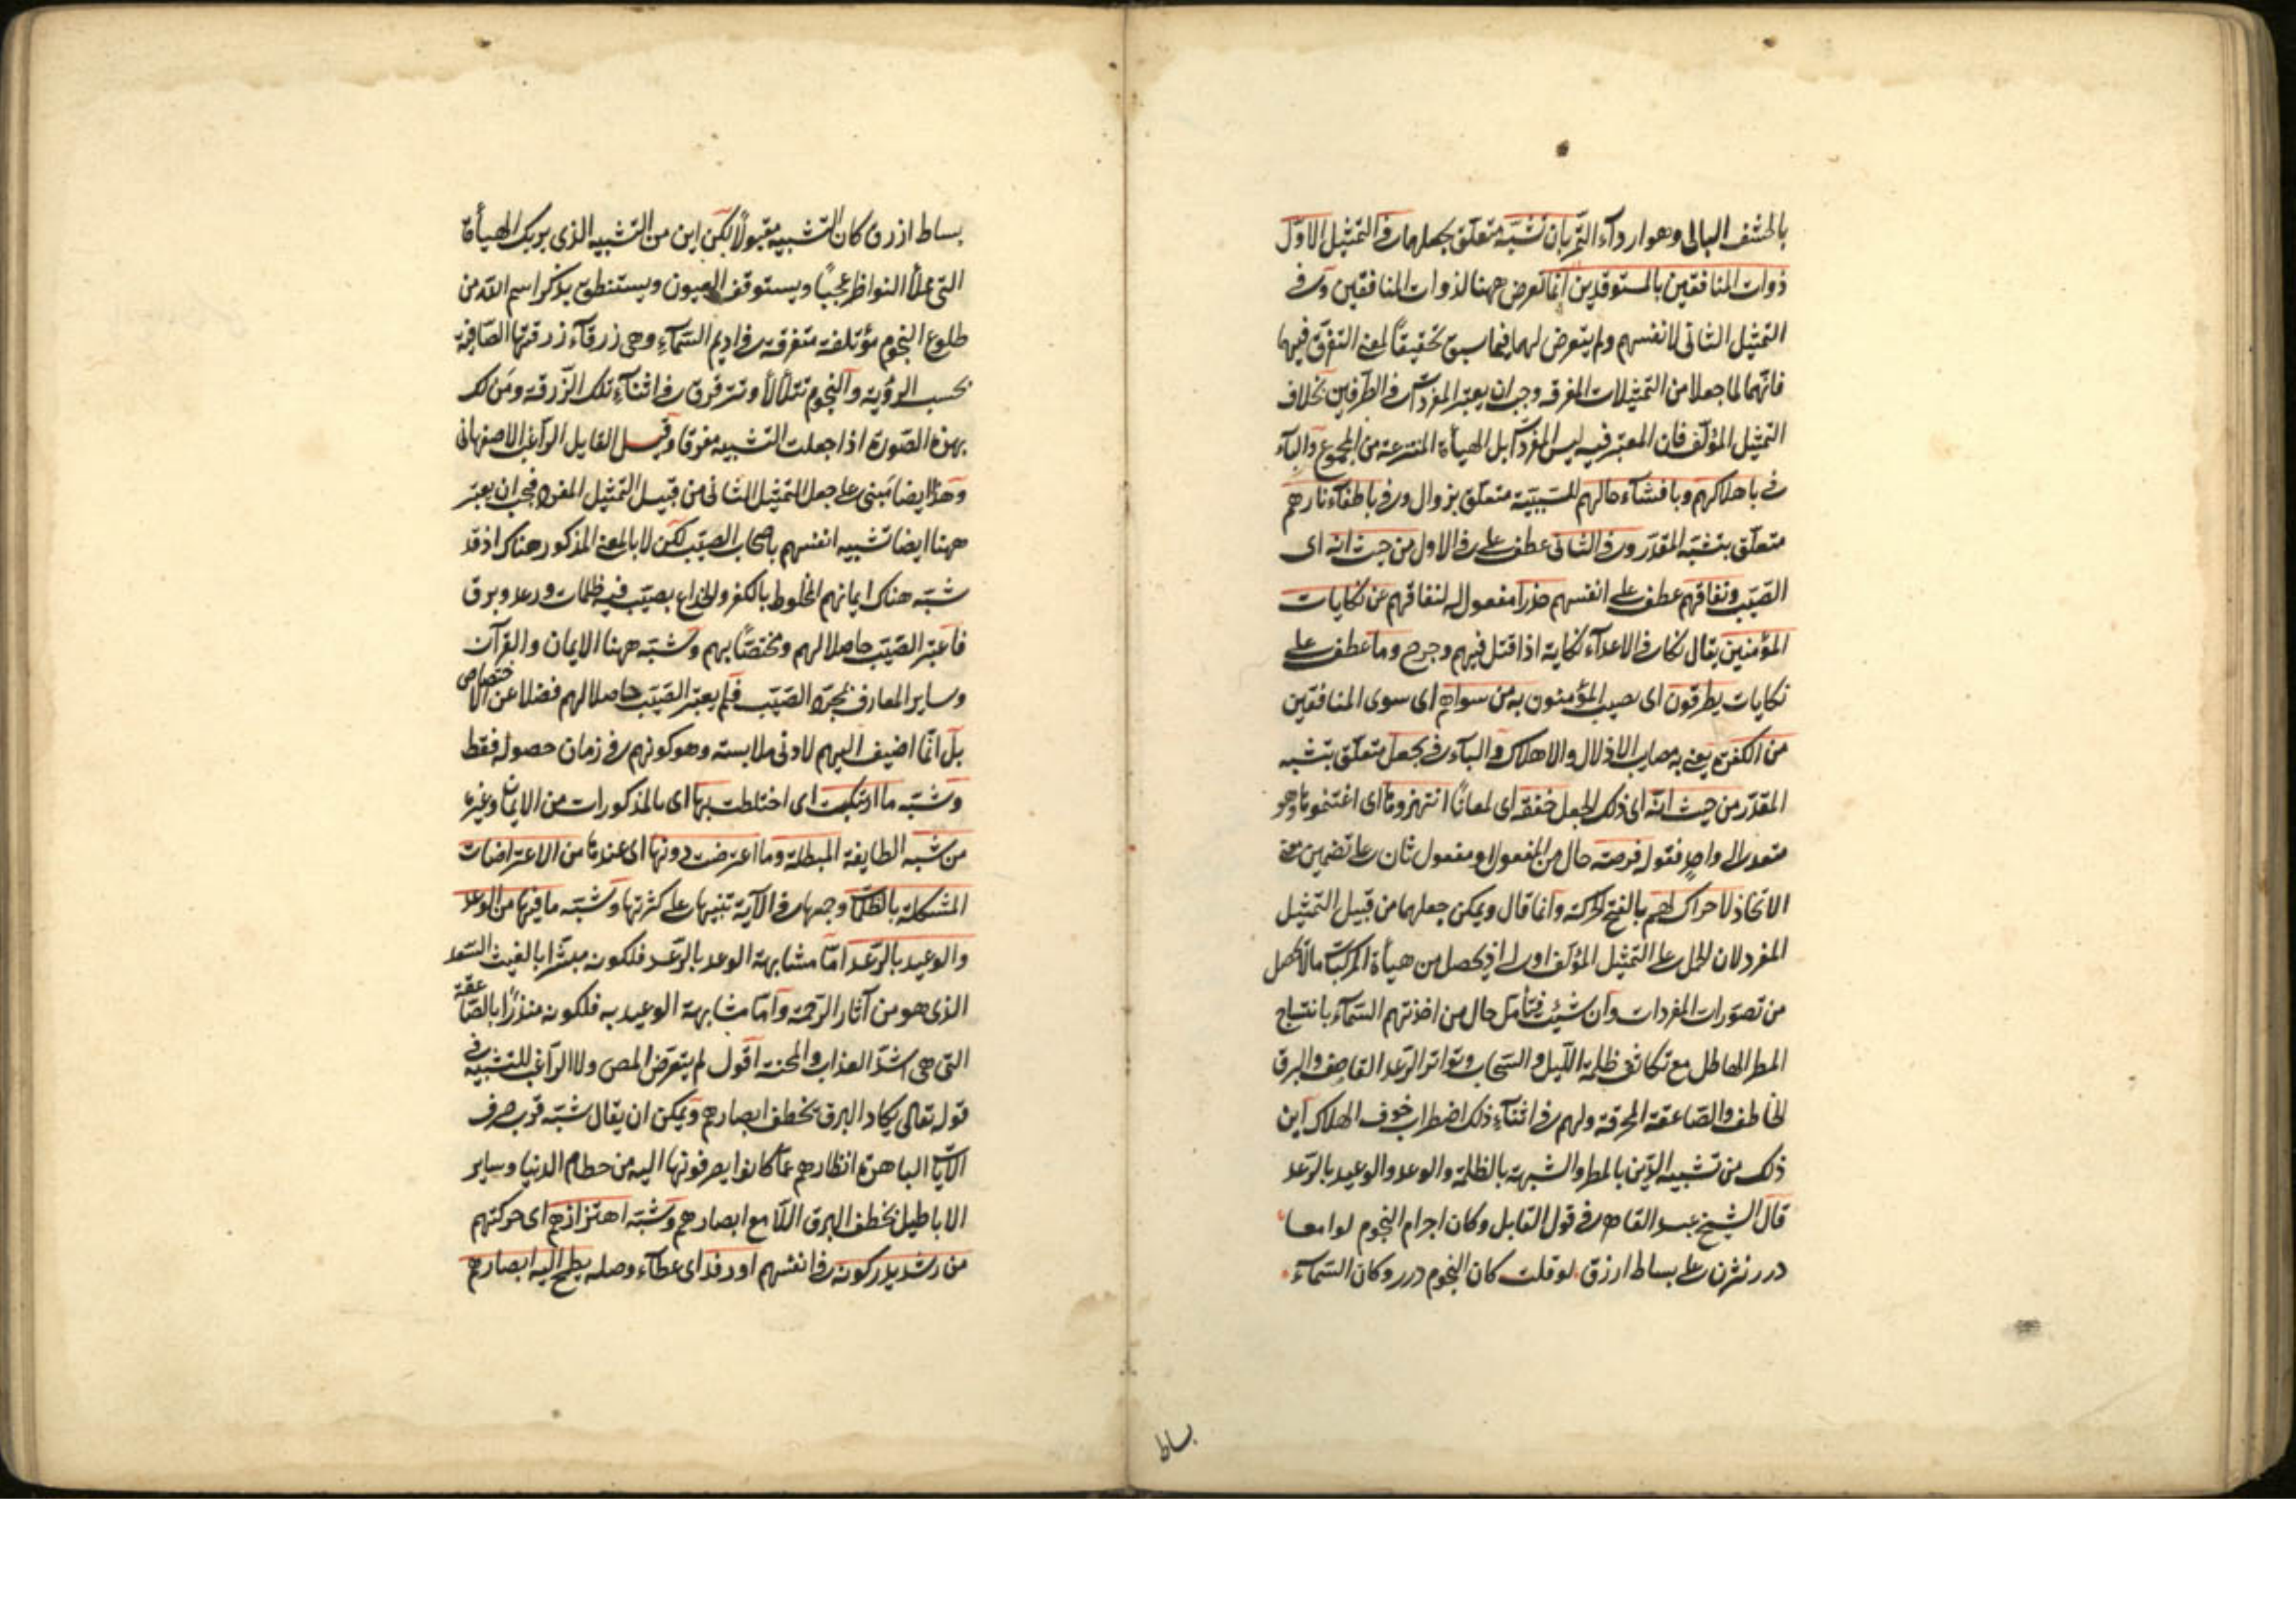 بالحشف البالى وهو اردآء التمر بان نشبّه متعلق بجعلهما وفى التمثيل الاوّل
ذوات المنافقين بالمستوقدين انما تعرض ههنا لذوات المنافقين وفى
التمثيل الثانى لانفسهم ولم يتعرض لهما فيما سبق تحقيقاً لمعنى التفرق فيهما
فانهما لما جعلا من التمثيلات المفرقه وجب ان يعتبر المفردات فى الطرفين بخلاف
التمثيل المؤلف فان المعتبر فيه ليس المفردات بل الهيأة المنتزعة من المجموع والبآء
فى باهلاكهم وبافشآء حالهم للسببيّة متعلق بزوال وفى باطفآء نارهم
متعلق بتشبّه المقدّر وفى الثانى عطف على فى الاول من حيث انه اى
الصيّب ونفاقهم عطف على انفسهم حذرا مفعول له لنفاقهم عن نكايات
المؤمنين يقال نكات فى الاعدآء نكاية اذا قتل فيهم وجرح وما عطف على
نكايات يطرقون اى يصيب المؤمنون به من سواهم اى سوى المنافقين
من الكفرة يعنى به مصايب الاذلال والاهلاك والبآء فى بجعل متعلق بتشبه
المقدّر من حيث انّه اى ذلك الجعل خفقة اى لمعاناً انتهزوها اى اغتنموها وهو
متعد الى واحد فقوله فرصة حال من المفعول او مفعول ثان على تضمين معنى
الاتخاذ لا حراك لهم بالفتح الحركة وانما قال ويمكن جعلهما من قبيل التمثيل
المفرد لان الحمل على التمثيل المؤلف اولى اذ يحصل من هيأة المركبات مالا يحصل
من تصوّرات المفردات وان شئت فتأمل حال من اخذتهم السّمآء بانتساج
المطر الهاطل مع تكاثف ظلمة اللّيل والسّحاب وتواتر الرّعد القاصف والبرق
الخاطف والصّاعقة المحرقة ولهم فى اثنآء ذلك اضطراب خوف الهلاك اين
ذلك من تشبيه الدّين بالمطر والشبهة بالظلمة والوعد والوعيد بالرّعد
قال الشيخ عبد القاهر فى قول القايل وكان اجرام النجوم لوامعا
درر نثرن على بساط ازرق لو قلت كان النجوم درر وكان السّمآء
بساط
بساط ازرق كان التّشبيه مقبولاً لكن اين من التّشبيه الذى يريك الهيأة
التى تملأ النواظر عجباً ويستوقف العيون ويستنطق بذكر اسم اللّه من
طلوع النجوم مؤتلفة متفرقة فى اديم السّمآء وهى زرقآء زرقتها الصّافية
بحسب الرؤية والنجوم تتلألأ وتترقرق فى اثنآء تلك الزّرقة ومن لك
بهذه الصّورة اذا جعلت التشبيه مفرقا وقيل القايل الرّاغب الاصفهانى
وهذا ايضا مبنى على جعل التمثيل الثانى من قبيل التمثيل المفرد فيجب ان يعتبر
ههنا ايضا تشبيه انفسهم باصحاب الصيّب لكن لا بالمعنى المذكور هناك اذ قد
شبّه هناك ايمانهم المخلوط بالكفر والخداع بصيّب فيه ظلمات ورعد وبرق
فاعتبر الصّيّب حاصلا لهم ومختصّاً بهم وشبّه ههنا الايمان والقرآن
وساير المعارف بمجرّد الصّيّب فلم يعتبر الصّيّب حاصلا لهم فضلا عن الاختصاص
بل انّما اضيف اليهم لادنى ملابسة وهو كونهم فى زمان حصوله فقط
وشبّه ما ارتبكت اى اختلطت بها اى بالمذكورات من الايمان وغيره
من شبه الطايفة المبطلة وما اعترضت دونها اى عندها من الاعتراضات
المشكلة بالظلمات وجمعها فى الآية تنبيها على كثرتها وشبّه ما فيها من الوعد
والوعيد بالرّعد امّا مشابهة الوعد بالرّعد فلكونه مبشّرا بالغيث السّعد
الذى هو من آثار الرّحمة وامّا مشابهة الوعيد به فلكونه منذراً بالصّاعقة
التى هى اشدّ العذاب والمحنة اقول لم يتعرّض المص ولا الرّاغب للتشبيه فى
قوله تعالى يكاد البرق يخطف ابصارهم ويمكن ان يقال شبّه قرب صرف
الآيات الباهرة انظارهم عمّا كانوا يصرفونها اليه من حطام الدنيا وساير
الاباطيل بخطف البرق اللّامع ابصارهم وشبّه اهتزازهم اى حركتهم
من رشد يدركونه فى انفسهم او رفد اى عطآء وصلة يطمح اليه ابصارهم